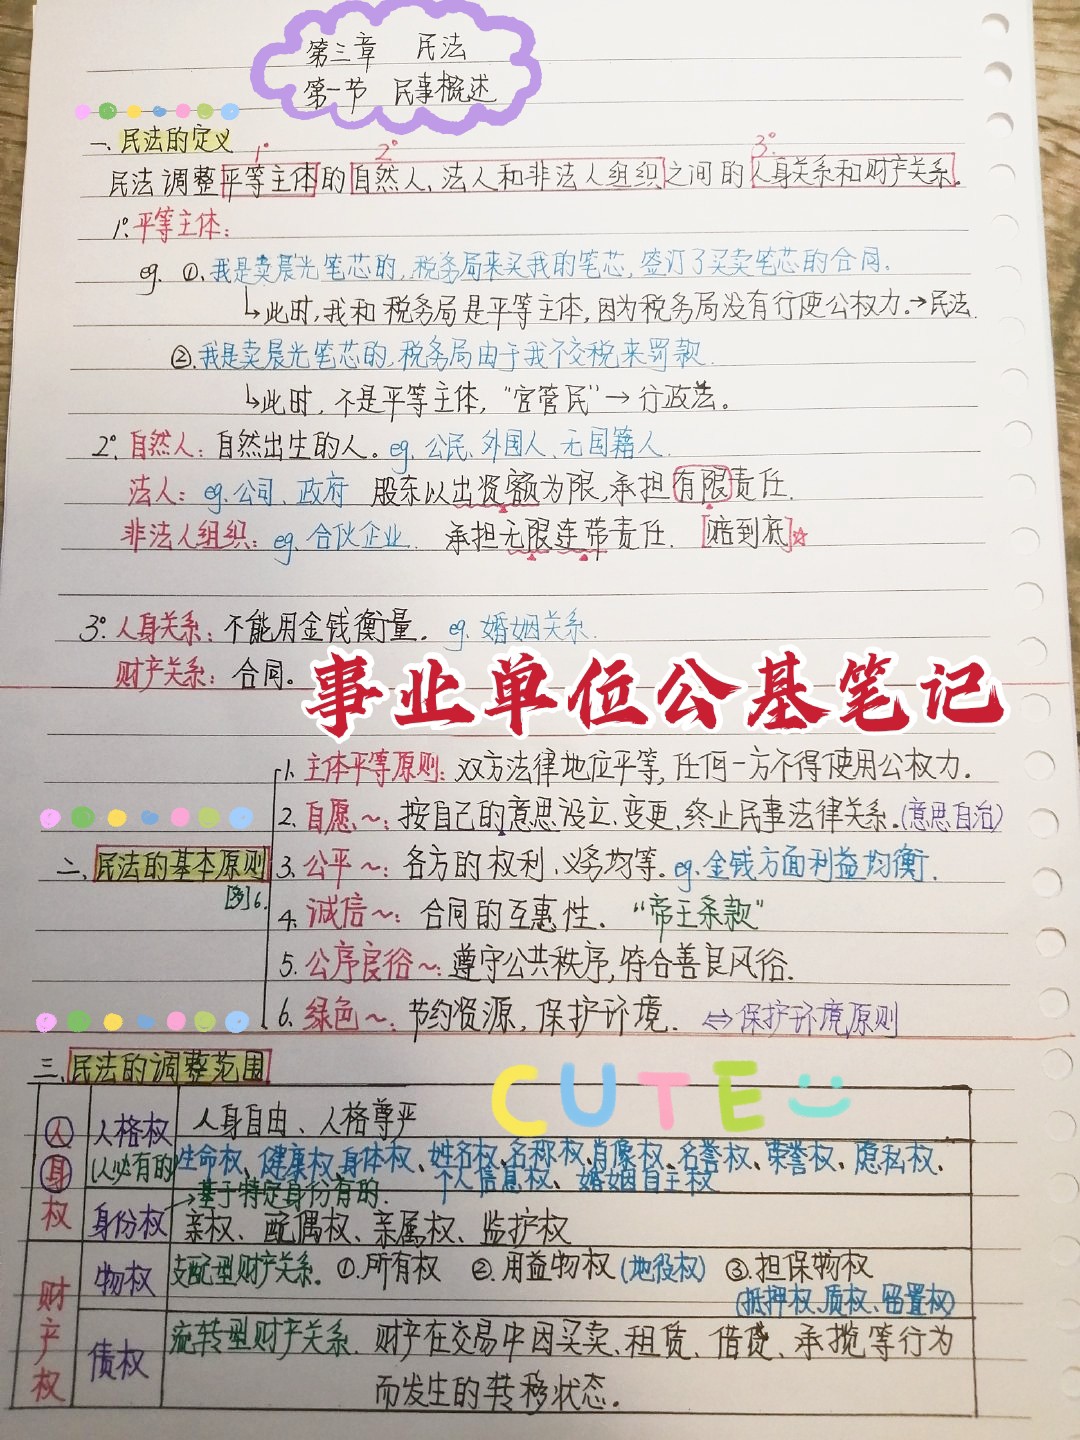 第三章 民法
第一节 民事概述
一、民法的定义
1° 2° 3°
民法调整平等主体的自然人、法人和非法人组织之间的人身关系和财产关系。
1°.平等主体:
eg. ①.我是卖晨光笔芯的,税务局来买我的笔芯,签订了买卖笔芯的合同.
↳此时,我和税务局是平等主体,因为税务局没有行使公权力.→民法.
②.我是卖晨光笔芯的,税务局由于我不交税来罚款.
↳此时,不是平等主体,“官管民”→行政法。
2°.自然人:自然出生的人。eg.公民、外国人、无国籍人.
法人: eg.公司、政府 股东以出资额为限,承担有限责任.
非法人组织: eg.合伙企业. 承担无限连带责任. [赔到底]☆
3°.人身关系:不能用金钱衡量. eg.婚姻关系.
财产关系:合同。
事业单位公基笔记
二、民法的基本原则
[多]6.
1.主体平等原则:双方法律地位平等,任何一方不得使用公权力.
2.自愿~:按自己的意思设立、变更、终止民事法律关系.(意思自治)
3.公平~:各方的权利、义务均等.eg.金钱方面利益均衡.
4.诚信~:合同的互惠性.“帝王条款”
5.公序良俗~:遵守公共秩序,符合善良风俗.
6.绿色~:节约资源,保护环境. ⇔保护环境原则
三、民法的调整范围
CUTE
人身权
人格权 人身自由、人格尊严
(人必有的) 生命权、健康权、身体权、姓名权、名称权、肖像权、名誉权、荣誉权、隐私权、
个人信息权、婚姻自主权
→基于特定身份有的.
身份权 亲权、配偶权、亲属权、监护权
财产权
物权 支配型财产关系. ①.所有权 ②.用益物权(地役权) ③.担保物权
(抵押权、质权、留置权)
债权 流转型财产关系. 财产在交易中因买卖、租赁、借贷、承揽等行为
而发生的转移状态.